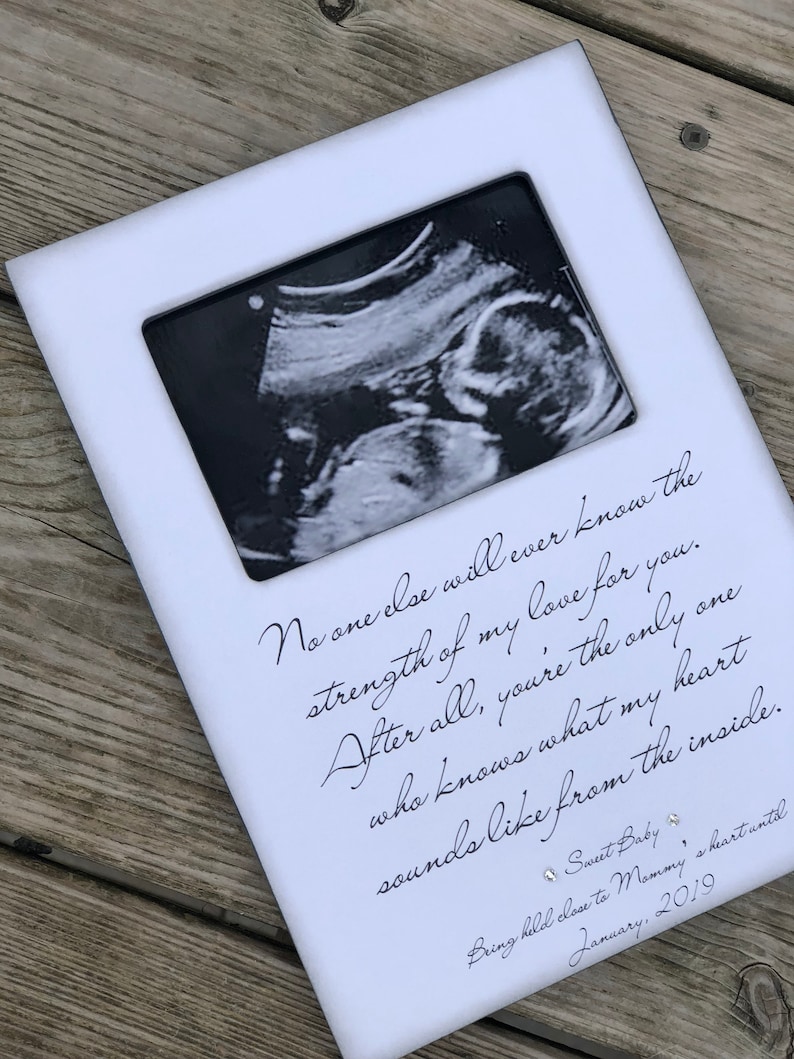 No one else will ever know the
strength of my love for you.
After all, you're the only one
who knows what my heart
sounds like from the inside.
Sweet Baby
Being held close to Mommy's heart until
January, 2019